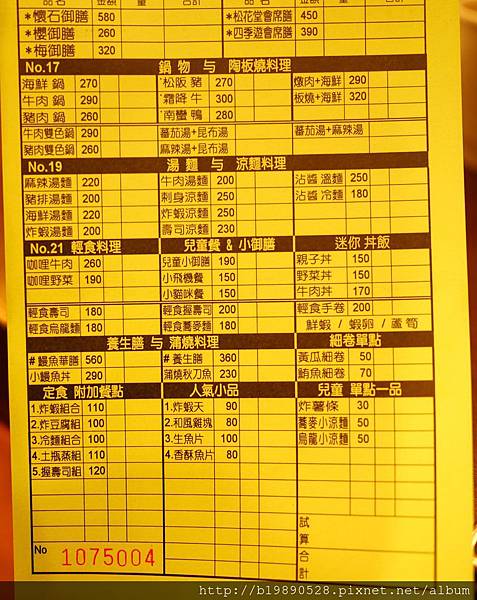 品名 金額 數量 品名 金額 數量
*懷石御膳 580 *松花堂會席膳 450
*櫻御膳 600 *四季遊會席膳 390
*梅御膳 320
No.17 鍋物 与 陶板燒料理
海鮮鍋 270 *松阪豬 300 燉肉+海鮮 290
牛肉鍋 290 *霜降牛 300 板燒+海鮮 320
豬肉鍋 260 *南蠻鴨 280
牛肉雙色鍋 290 蕃茄湯+昆布湯 蕃茄湯+麻辣湯
豬肉雙色鍋 260 麻辣湯+昆布湯
No.19 湯麵 与 涼麵料理
麻辣湯麵 220 牛肉湯麵 200 沾醬溫麵 250
豬排湯麵 200 刺身涼麵 250 沾醬冷麵 180
海鮮湯麵 220 炸蝦涼麵 250
炸蝦湯麵 200 壽司涼麵 230
No.21 輕食料理 兒童餐 & 小御膳 迷你丼飯
咖哩牛肉 260 兒童小御膳 190 親子丼 150
咖哩野菜 190 小飛機餐 150 野菜丼 150
小貓咪餐 150 牛肉丼 170
輕食壽司 180 輕食握壽司 200 輕食手卷 200
輕食烏龍麵 180 輕食蕎麥麵 180 鮮蝦 / 蝦卵 / 蘆筍
養生膳 与 蒲燒料理 細卷單點
# 鰻魚華膳 560 # 養生膳 360 黃瓜細卷 50
小鰻魚丼 290 蒲燒秋刀魚 230 鮪魚細卷 70
定食 附加餐點 人氣小品 兒童 單點一品
1.炸蝦組合 110 1.炸蝦天 90 炸薯條 30
2.炸豆腐組 100 2.和風雞塊 80 蕎麥小涼麵 50
3.冷麵組合 100 3.生魚片 100 烏龍小涼麵 50
4.土瓶蒸組 110 4.香酥魚片 80
5.握壽司組 120
試算合計
No 1075004
http://b19890528.pixnet.net/album